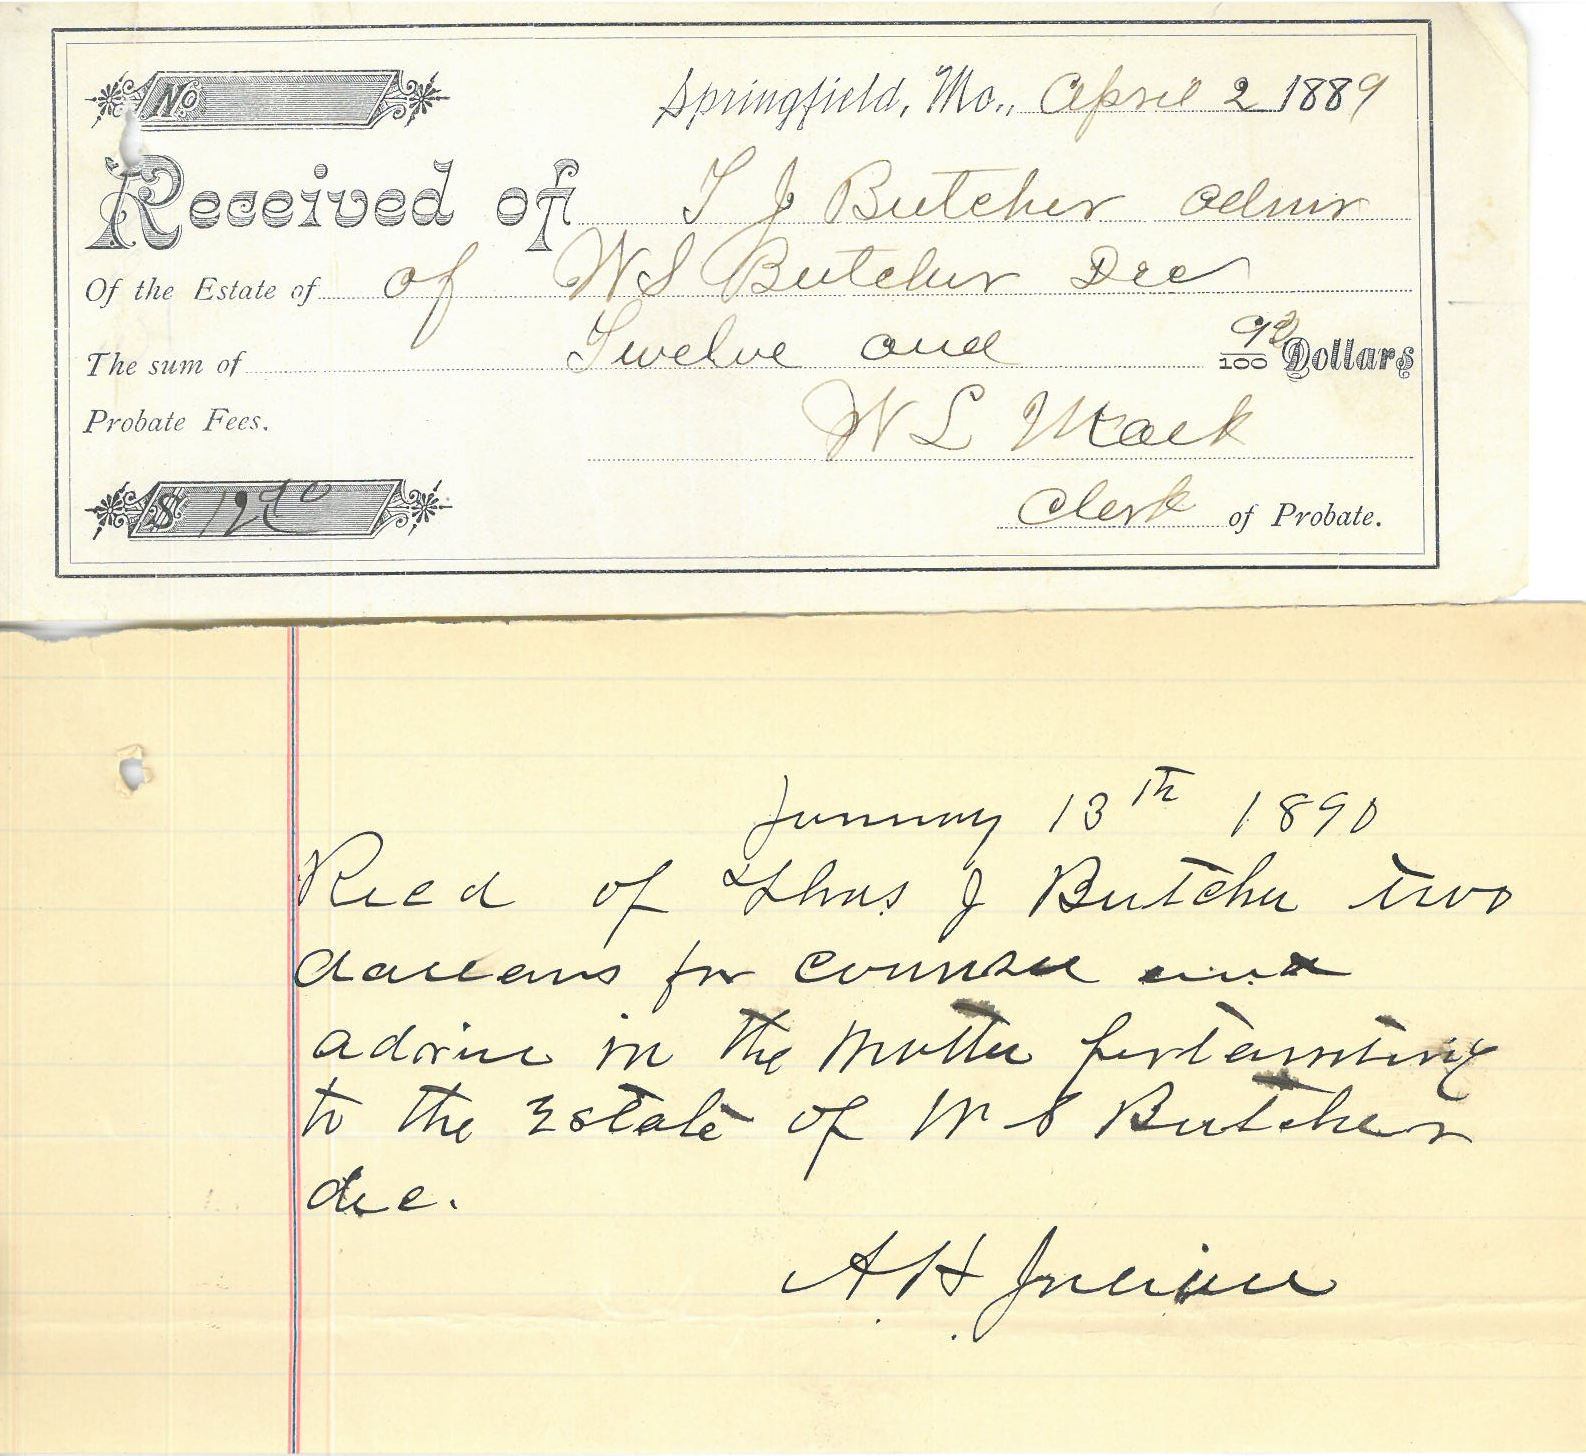 No
Springfield, Mo., April 2 1889
Received of T J Butcher admr
Of the Estate of of W S Butcher Dec
The sum of Twelve and 90/100 Dollars
Probate Fees. W L Mack
$ 12 90
Clerk of Probate.
January 13th 1890
Recd of Thos J Butcher two
dollars for counsel and
advice in the matter pertaining
to the Estate of W S Butcher
dec.
A H Julian